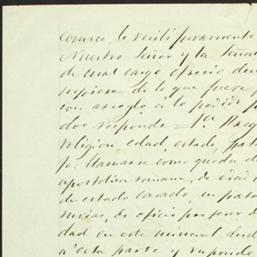 conoce, le recibí juramento
Nuestro Señor y la Señal
de cual cargo ofreció dec
supiese de lo que fuere p
con arreglo a lo pedido p
dor responde = 1ª Preg
religion, edad, estado, pat
jo: llamarse como queda d
apostólica romana, de edad
de estado casado, su patr
de oficio profesor d
dad en este mineral desd
a esta parte y responde